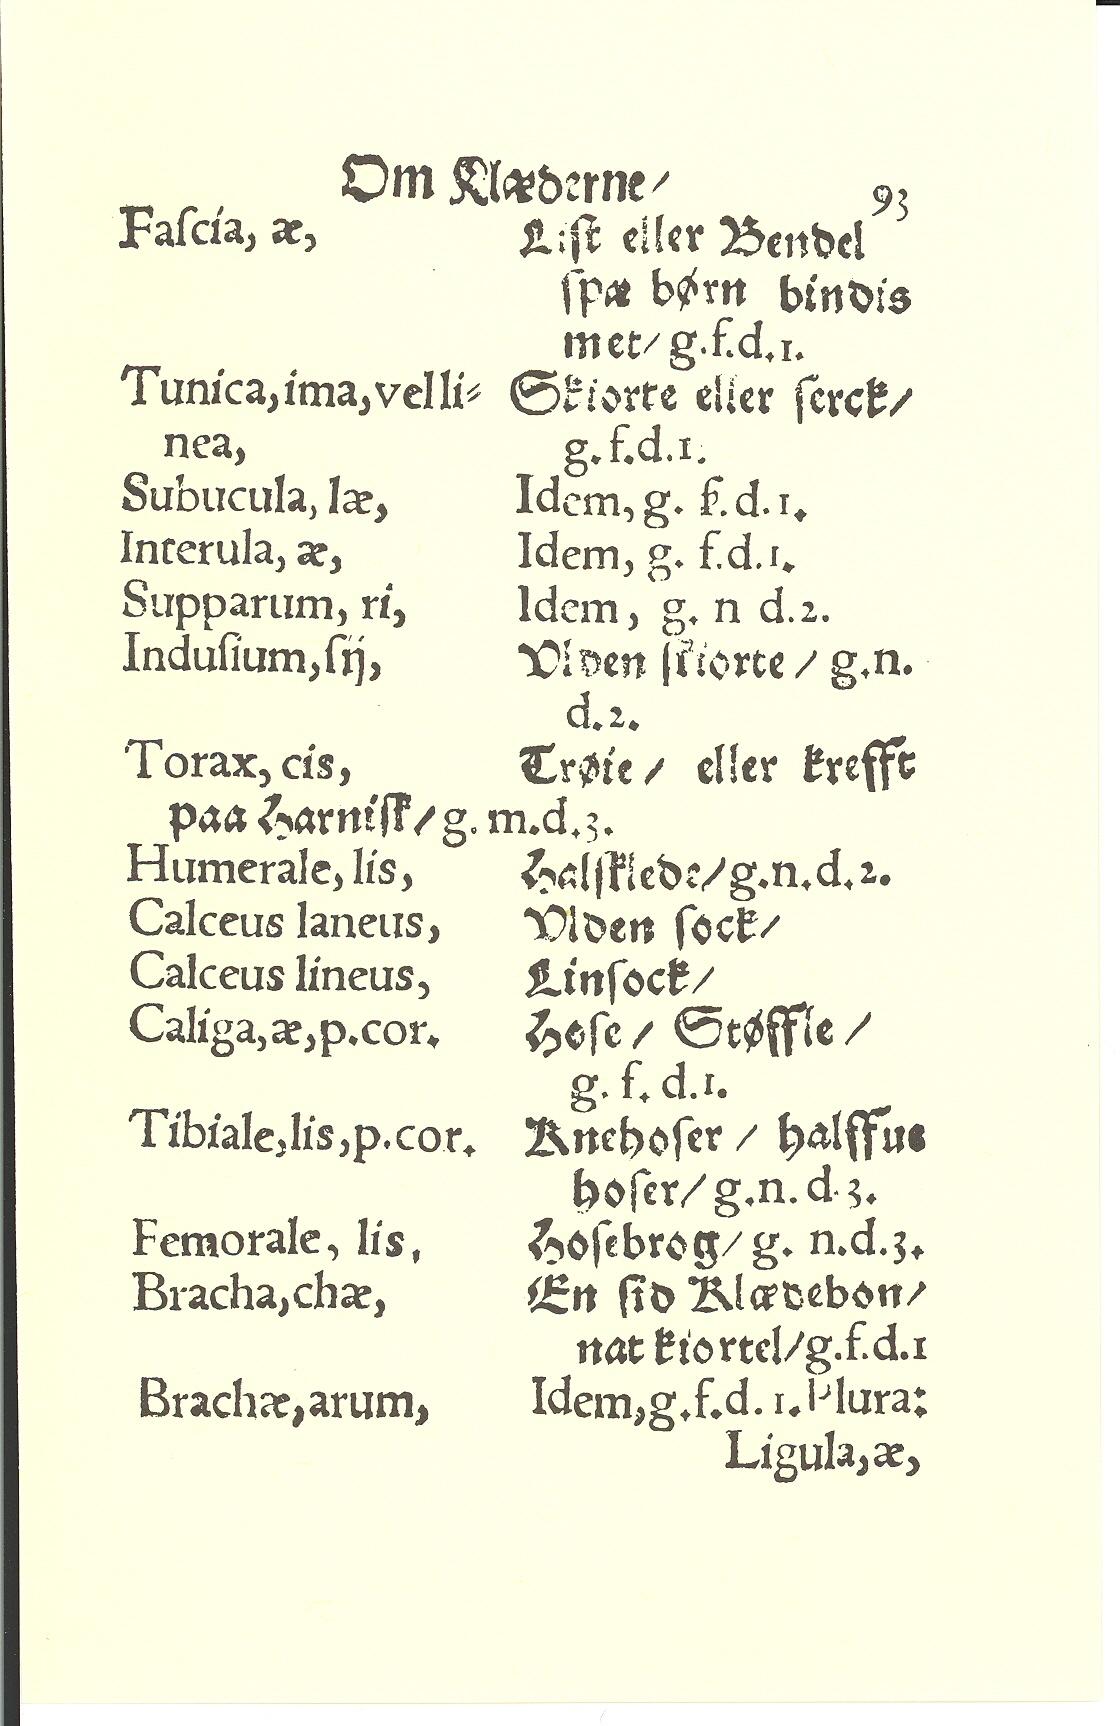 Om Klæderne/
93
Faſcia, æ, Liſt eller Bendel
ſpæ børn bindis
met/ g.f.d.1.
Tunica, ima, vel li⸗ Skiorte eller ſerck/
nea, g.f.d.1.
Subucula, læ, Idem, g. f.d.1.
Interula, æ, Idem, g. f.d.1.
Supparum, ri, Idem, g. n d.2.
Induſium, ſij, Vlden ſkiorte / g.n.
d.2.
Torax, cis, Trøie / eller krefft
paa Harniſk/ g. m.d.3.
Humerale, lis, Halſklede/ g.n.d.2.
Calceus laneus, Vlden ſock/
Calceus lineus, Linſock/
Caliga, æ, p.cor. Hoſe / Støffle /
g. f. d.1.
Tibiale, lis, p.cor. Knehoſer / halffue
hoſer/ g.n.d.3.
Femorale, lis, Hoſebrog/ g. n.d.3.
Bracha, chæ, En ſid Klædebon/
nat kiortel/ g.f.d.1
Brachæ, arum, Idem, g.f.d.1. Plura:
Ligula, æ,